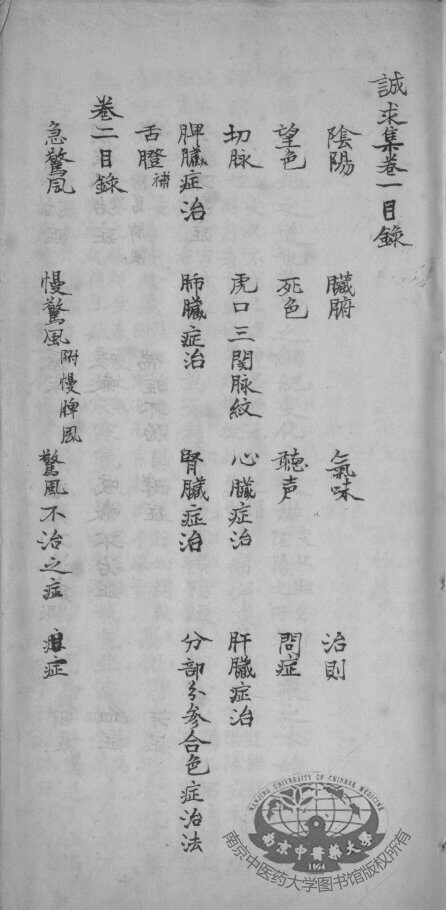 誠求集卷一目錄
陰陽 臟腑 氣味 治則
望色 死色 聽声 問症
切脉 虎口三関脉紋 心臟症治 肝臟症治
脾臟症治 肺臟症治 腎臟症治 分部分参合色症治法
舌證補
卷二目錄
急驚風 慢驚風附慢脾風 驚風不治之症 疳症
NANJING UNIVERSITY OF CHINESE MEDICINE
南京中醫藥大學
1954
南京中医药大学图书馆版权所有